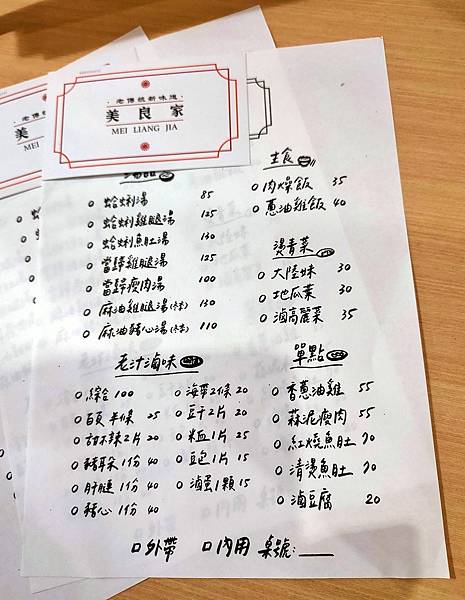 老傳統新味道
美良家
MEI LIANG JIA
美
MEI
湯品
蛤蜊湯 85
蛤蜊雞腿湯 125
蛤蜊魚肚湯 130
當歸雞腿湯 125
當歸瘦肉湯 100
麻油雞腿湯 130
麻油豬心湯 110
主食
肉燥飯 35
蔥油雞飯 40
燙青菜
大陸妹 30
地瓜葉 30
滷高麗菜 35
老汁滷味
綜合 100
百頁半條 25
甜不辣2片 20
豬耳朵1份 40
肝腱1份 40
豬心1份 40
海帶2條 20
豆干2片 20
米血1片 25
豆包1片 15
滷蛋1顆 15
單點
香蔥油雞 55
蒜泥瘦肉 55
紅燒魚肚 70
清燙魚肚 70
滷豆腐 20
□外帶 □內用 桌號: